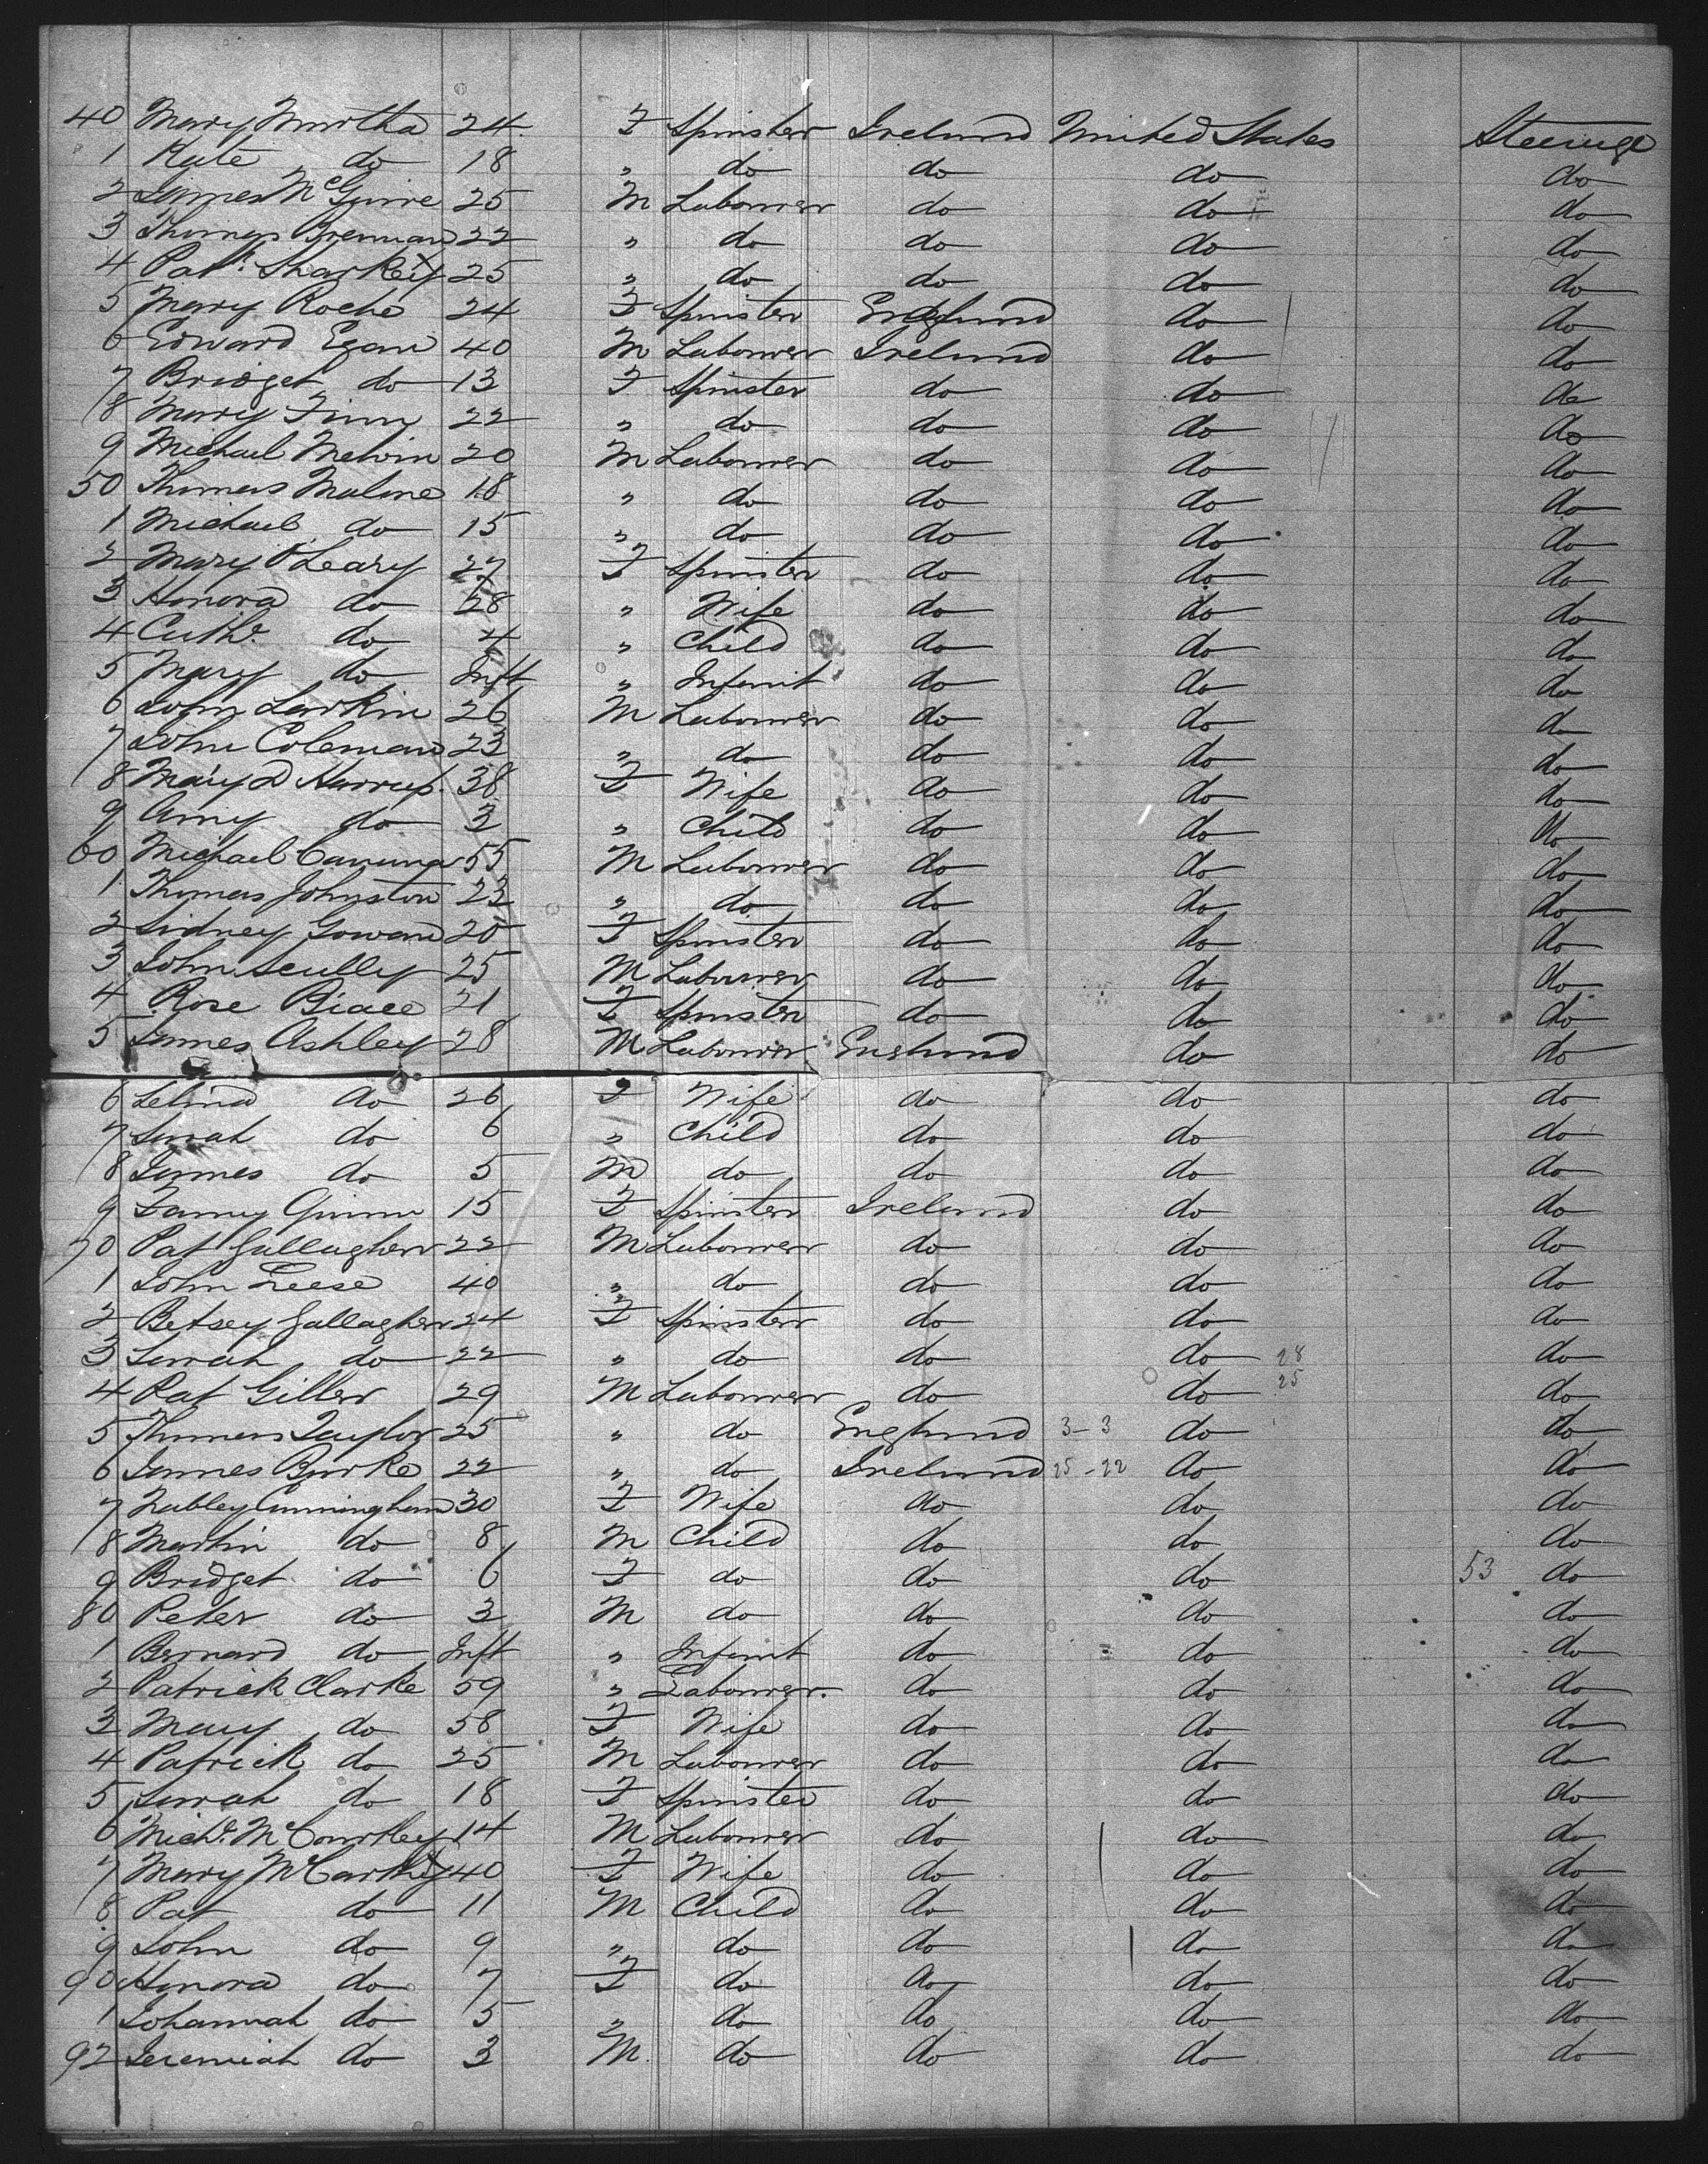 40 Mary Murtha 24 F Spinster Ireland United States Steerage
1 Kate do 18 " do do do do
2 James McGuire 25 M Labourer do do do
3 Thomas Brennan 22 " do do do do
4 Patk. Sharkey 25 " do do do do
5 Mary Roche 24 F Spinster England do do
6 Edward Egan 40 M Labourer Ireland do do
7 Bridget do 13 F Spinster do do do
8 Mary Finn 22 " do do do do
9 Michael Melvin 20 M Labourer do do do
50 Thomas Malone 18 " do do do do
1 Michael do 15 " do do do do
2 Mary O'Leary 27 F Spinster do do do
3 Honora do 28 " Wife do do do
4 Cathe. do 4 " Child do do do
5 Mary do Inft " Infant do do do
6 John Larkin 26 M Labourer do do do
7 John Coleman 23 " do do do do
8 Mary D Harrup 38 F Wife do do do
9 Amy do 3 " Child do do do
60 Michael 55 M Labourer do do do
1 Thomas Johnston 22 " do do do do
2 Sidney Gowan 20 F Spinster do do do
3 John Scully 25 M Labourer do do do
4 Rose 21 F Spinster do do do
5 James Ashley 28 M Labourer England do do
6 Selina do 26 F Wife do do do
7 Sarah do 6 " Child do do do
8 James do 5 M do do do do
9 Fanny Quinn 15 F Spinster Ireland do do
70 Pat Gallagher 22 M Labourer do do do
1 John Leese 40 " do do do do
2 Betsey Gallagher 24 F Spinster do do do
3 Sarah do 22 " do do do 28 do
4 Pat Giller 29 M Labourer do do 25 do
5 Thomas Taylor 25 " do England 3-3 do do
6 James Burke 22 " do Ireland 25-22 do do
7 Cunningham 30 F Wife do do do
8 Martin do 8 M Child do do do
9 Bridget do 6 F do do do 53 do
80 Peter do 3 M do do do do
1 Bernard do Inft " Infant do do do
2 Patrick Clarke 59 " Labourer. do do do
3 Mary do 58 F Wife do do do
4 Patrick do 25 M Labourer do do do
5 Sarah do 18 F Spinster do do do
6 Michl. McCourtley 14 M Labourer do do do
7 Mary McCarthy 40 F Wife do do do
8 Pat do 11 M Child do do do
9 John do 9 " do do do do
90 Honora do 7 F do do do do
1 Johannah do 5 " do do do do
92 Jeremiah do 3 M do do do do